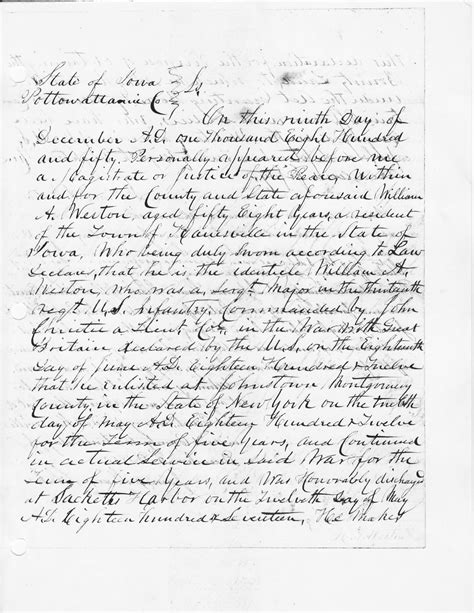 State of Iowa } ss
Pottowattamie Co }
On this ninth Day of
December A.D. one Thousand Eight Hundred
and fifty. Personally appeared before me
a Magistrate or Justice of the Peace, Within
and for the County and State aforesaid William
A. Weston, aged fifty Eight Years, a resident
of the Town of Kanesville in the State of
Iowa, Who being duly sworn according to Law
Declare, that he is the identicle William A.
Weston, who was a Sergt. Major in the thirteenth
regt U.S. Infantry, Commanded by John
Christie a Lieut Col. in the War with Great
Britain declared by the U.S. on the Eighteenth
Day of June A.D. Eighteen Hundred & Twelve
that he enlisted at Johnstown Montgomery
County, in the State of New York on the twelfth
day of May A.D. Eighteen Hundred & Twelve
for the Term of five Years, and Continued
in actual Service in Said War for the
Term of five Years, and Was Honorably discharged
at Sacketts Harbor on the Twelveth Day of May
A.D. Eighteen hundred & Seventeen, He Makes